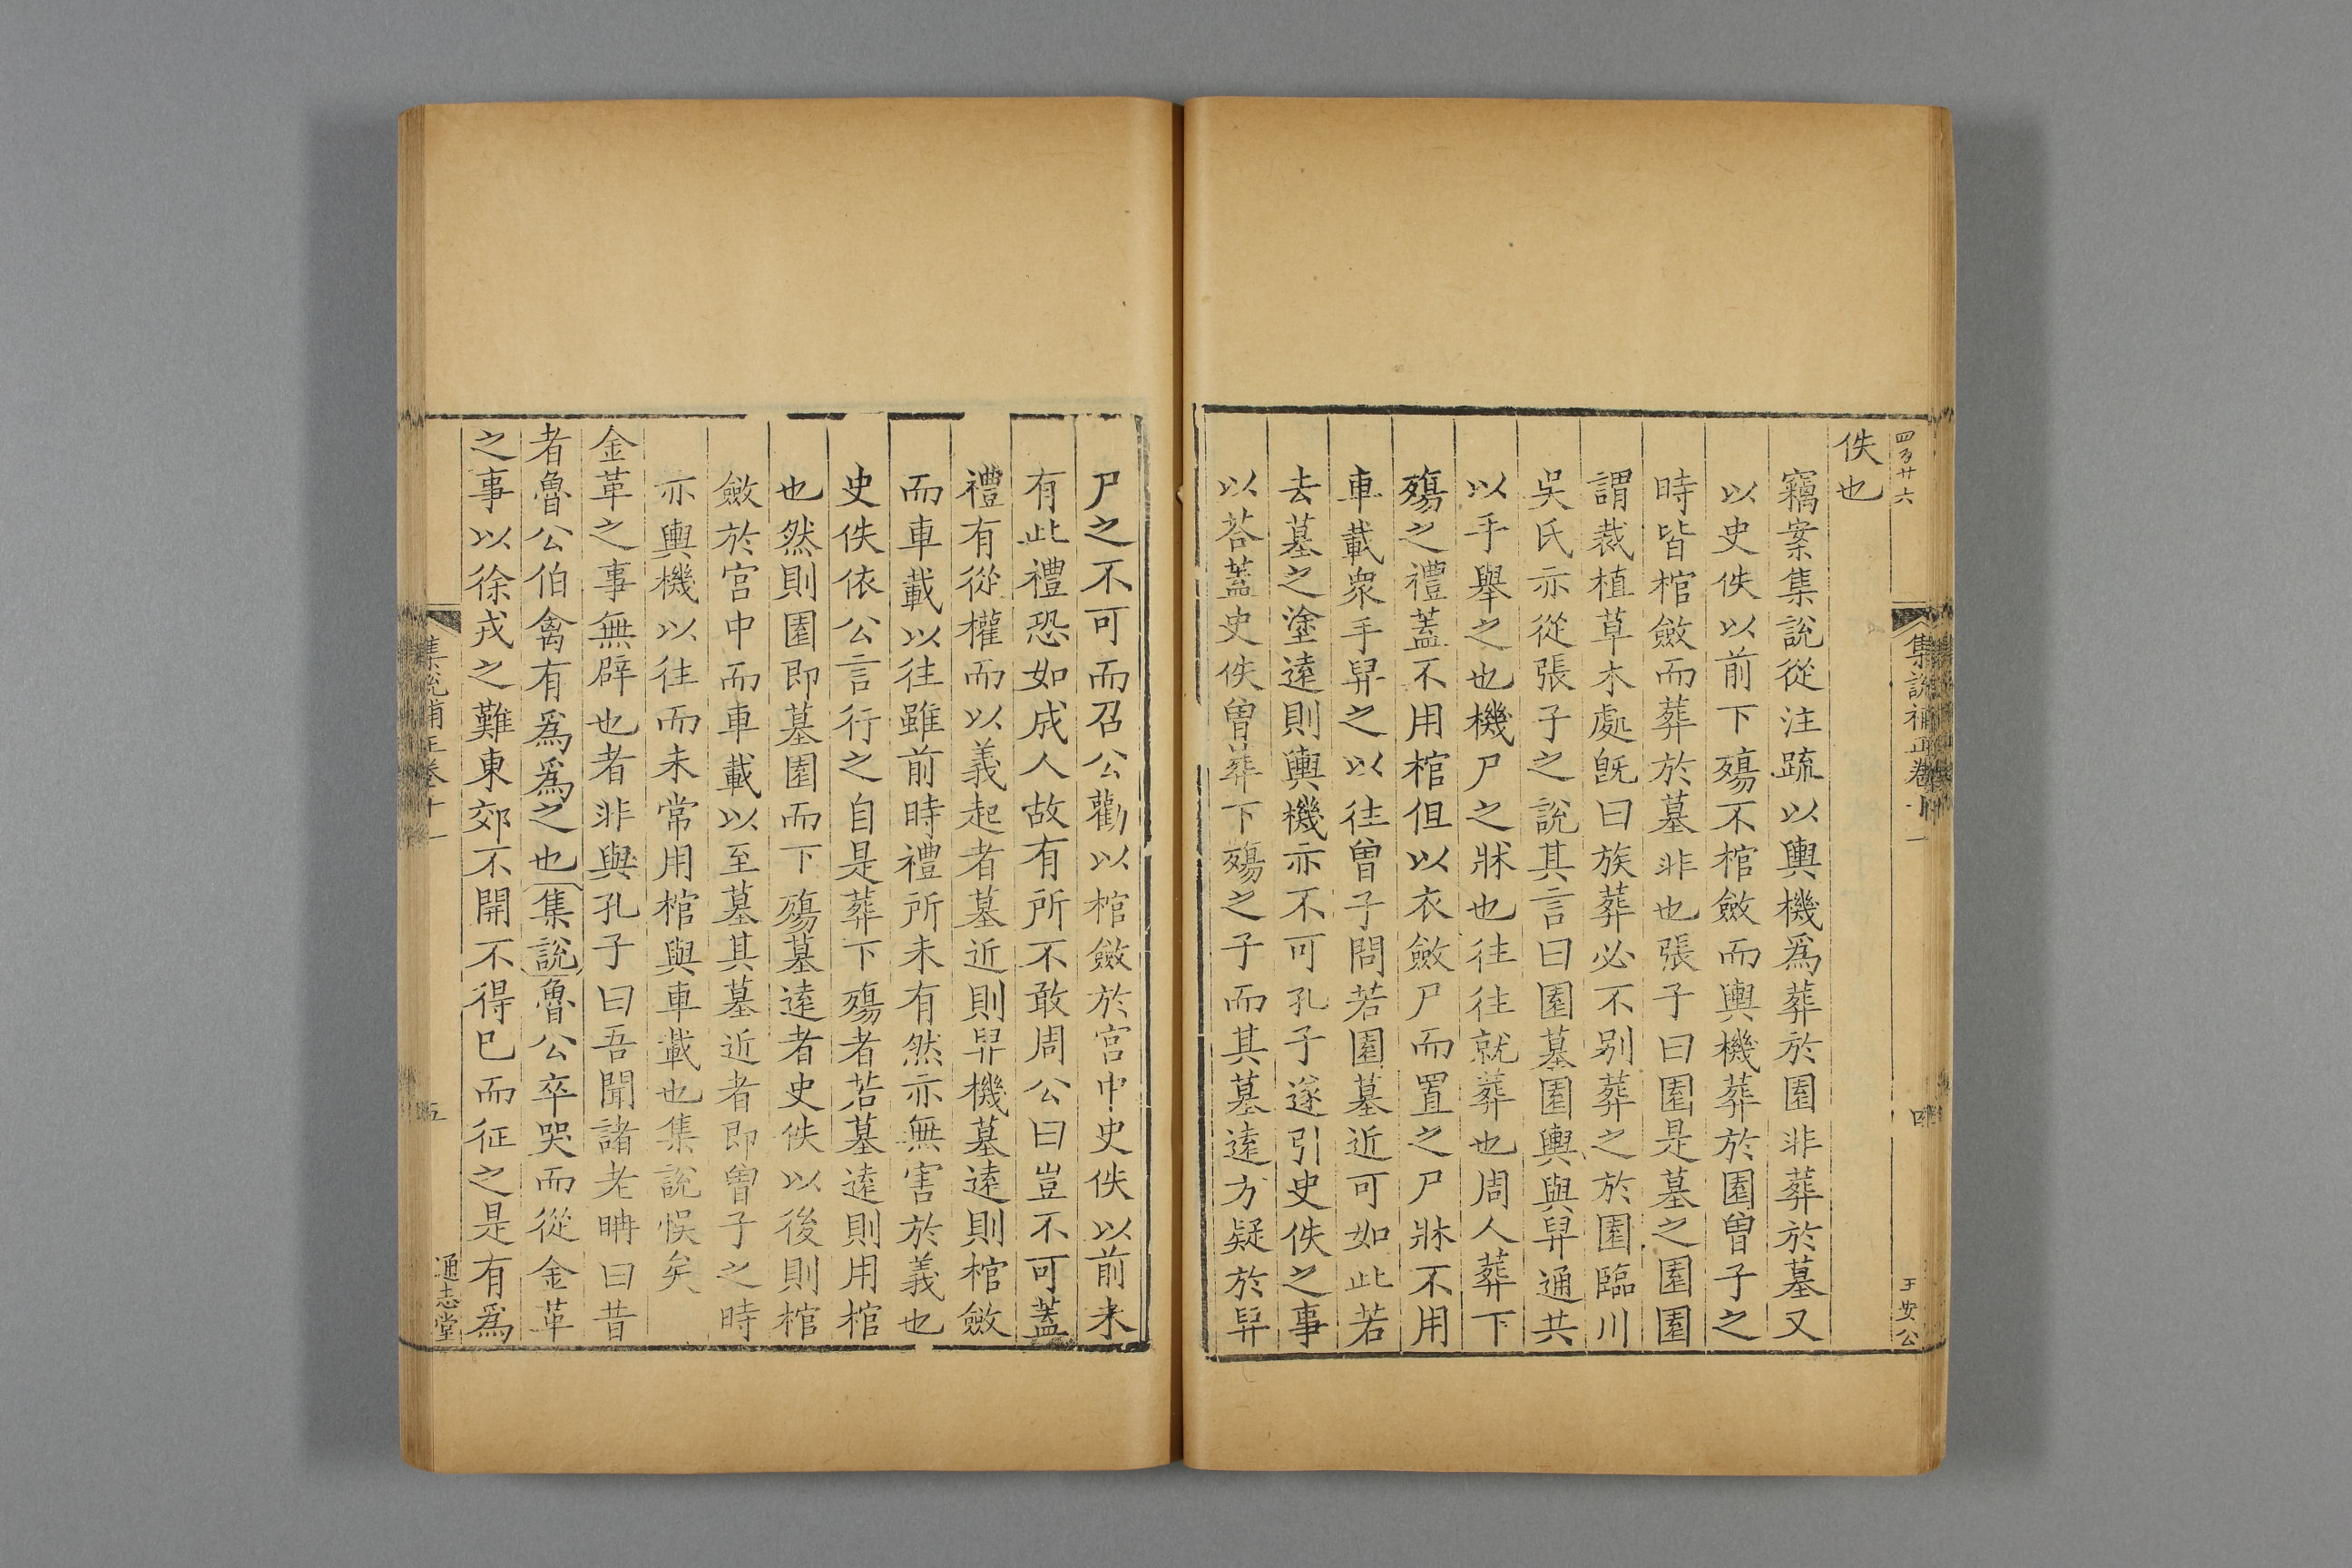 四百廿六
集說補正卷十一
四
王安公
佚也
竊案集說從注疏以輿機爲葬於園非葬於墓又
以史佚以前下殤不棺斂而輿機葬於園曾子之
時皆棺斂而葬於墓非也張子曰園是墓之園園
謂栽植草木處旣曰族葬必不别葬之於園臨川
吳氏亦從張子之說其言曰園墓園輿與舁通共
以手舉之也機尸之牀也往往就葬也周人葬下
殤之禮蓋不用棺但以衣斂尸而置之尸牀不用
車載衆手舁之以往曾子問若園墓近可如此若
去墓之塗遠則輿機亦不可孔子遂引史佚之事
以荅蓋史佚曾葬下殤之子而其墓遠方疑於舁
尸之不可而召公勸以棺斂於宮中史佚以前未
有此禮恐如成人故有所不敢周公曰豈不可蓋
禮有從權而以義起者墓近則舁機墓遠則棺斂
而車載以往雖前時禮所未有然亦無害於義也
史佚依公言行之自是葬下殤者若墓遠則用棺
也然則園即墓園而下殤墓遠者史佚以後則棺
斂於宮中而車載以至墓其墓近者即曾子之時
亦輿機以往而未常用棺與車載也集說悞矣
金革之事無辟也者非與孔子曰吾聞諸老聃曰昔
者魯公伯禽有爲爲之也集說魯公卒哭而從金革
之事以徐戎之難東郊不開不得已而征之是有爲
集說補正卷十一
五
通志堂